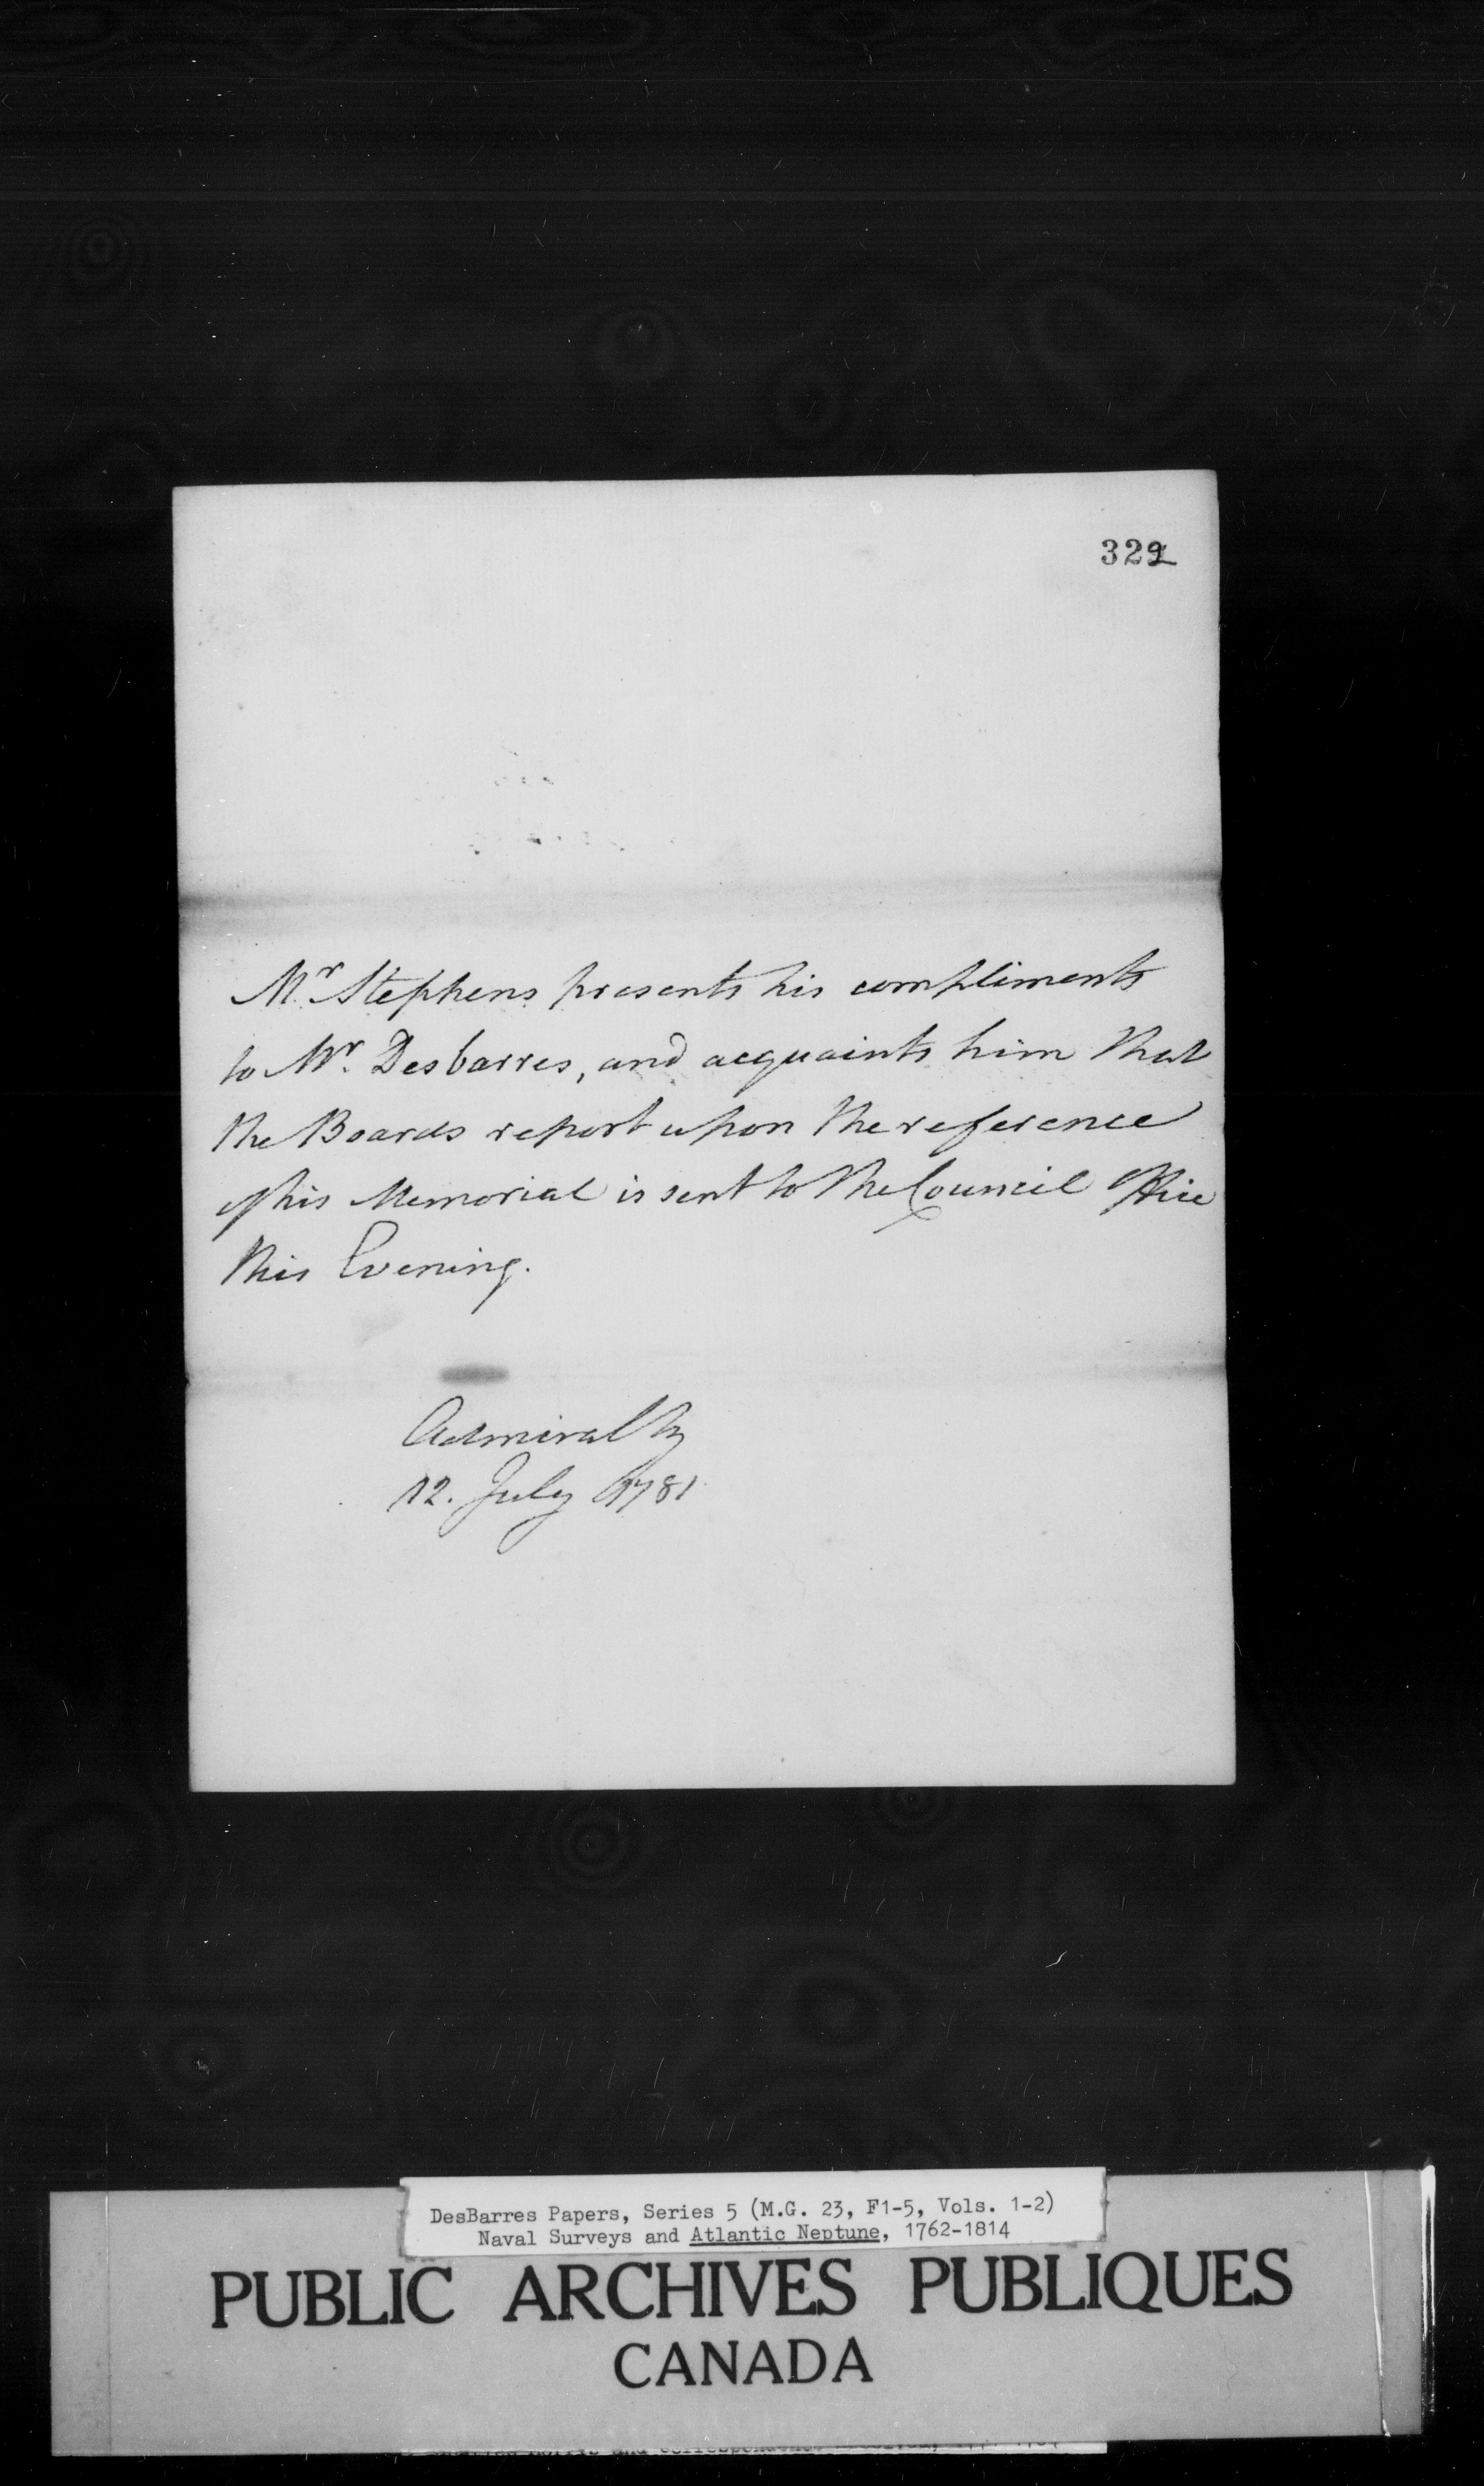 322
Mr. Stephens presents his compliments
to Mr. Desbarres, and acquaints him that
the Boards report upon the reference
of his Memorial is sent to the Council Office
this Evening.
Admiralty
12. July 1781
DesBarres Papers, Series 5 (M.G. 23, F1-5, Vols. 1-2)
Naval Surveys and Atlantic Neptune, 1762-1814
PUBLIC ARCHIVES PUBLIQUES
CANADA